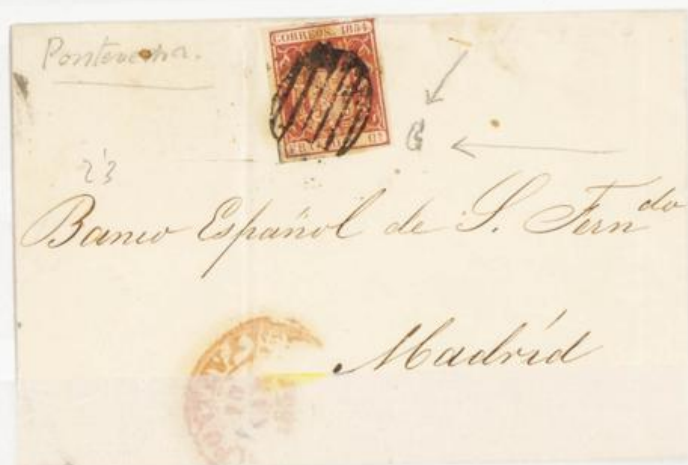 Pontevedra.
CORREOS. 1854
23
B
Banco Español de S. Fern^do
Madrid